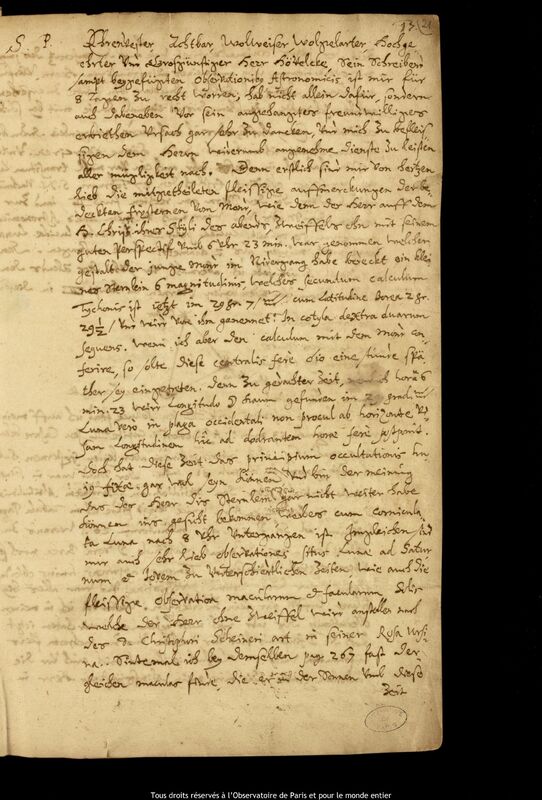 13 (21
S. P.
Ehrenvester, Achtbar, Wollweiser, Wolgelarter, Hochge
ehrter und Grosgünstiger Herr Hövelcke, Sein Schreiben
sampt beygefügten Observationibus Astronomicis ist mir für
8 Tagen zu recht worden, hab nicht allein dafür, sondern
auch daneben vor sein angehangtes freundwilliges
erbiethen Ursach gar sehr zu dancken, und mich zu befleis
sigen dem Herrn wiederumb angenehme dienste zu leisten
aller mögligkeit nach. Denn erstlich sind mir von hertzen
lieb die mitgetheileten fleissige auffmerckungen der be
deckten fixsternen vom Mond, wie denn der Herr auff dem
Christ des abends mit seinem
guten Perspectif umb 6 Uhr 23 min. war genommen welcher
gestalt der junge Mond im Nidergang habe bedeckt ein klei
nes Sternlein 6 magnitudinis welches secundum calculum
Tychonis ist jetzt im 29 gr. 7 / cum latitudine Borea 2 gr.
29½ / und wird von ihm genennet: In costa dextra duarum
sequens. wenn ich aber den calculum mit dem Mond
so solte diese centralis fere eine stunde spä
ter eingetreten. denn zu gedachter Zeit, hora 6
min. 23 wird Longitudo kaum gefunden im gradu
Luna vero in plaga occidentali non procul ab horizonte
Longitudinem hic ad dodrantem horae fere
Doch hat diese Zeit das principium occultationis
fixae gar wol seyn können Und bin der meinung
das der Herr dis Sternlein gar nicht weiter habe
können ins gesicht bekommen, welches cum cornicula
ta Luna nach 8 Uhr Untergangen ist Imgleichen sind
mir auch sehr lieb observationes situs Lunae ad Satur
num et Jovem zu unterschiedtlichen Zeiten wie auch die
fleissige observation macularum et facularum Solis
welche der Herr ohne zweiffel wird anstellen nach
des P. Christophori Scheineri art in seiner Rosa Ursi
na. Sintemal ich bey demselben pag. 267 fast der
gleichen maculas finde, die er in der Sonnen umb diese
Zeit
Tous droits réservés à l'Observatoire de Paris et pour le monde entier